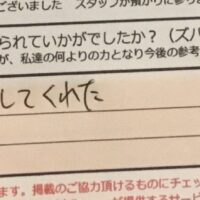 ございました　スタッフが預かりに参り
られていかがでしたか？（ズバ
が、私達の何よりの力となり今後の参考
してくれた
ます。掲載のご協力頂けるものにチェッ
が提供するサービ